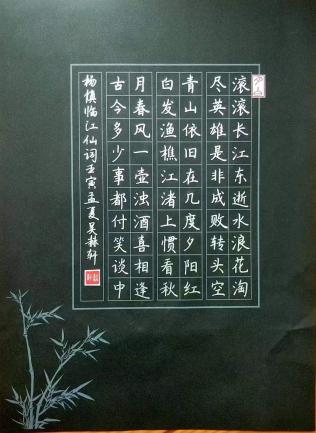 滚滚长江东逝水浪花淘
尽英雄是非成败转头空
青山依旧在几度夕阳红
白发渔樵江渚上惯看秋
月春风一壶浊酒喜相逢
古今多少事都付笑谈中
杨慎临江仙词壬寅孟夏吴赫轩